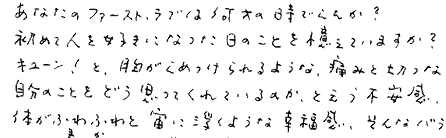 あなたのファースト、ラブは何才の時でしたか?
初めて人を好きになった日のことを憶えていますか?
キューン!と、胸がしめつけられるような、痛みと切つな
自分のことをどう思ってくれているのか、という不安感、
体がふわふわと宙に浮くような幸福感、そんな